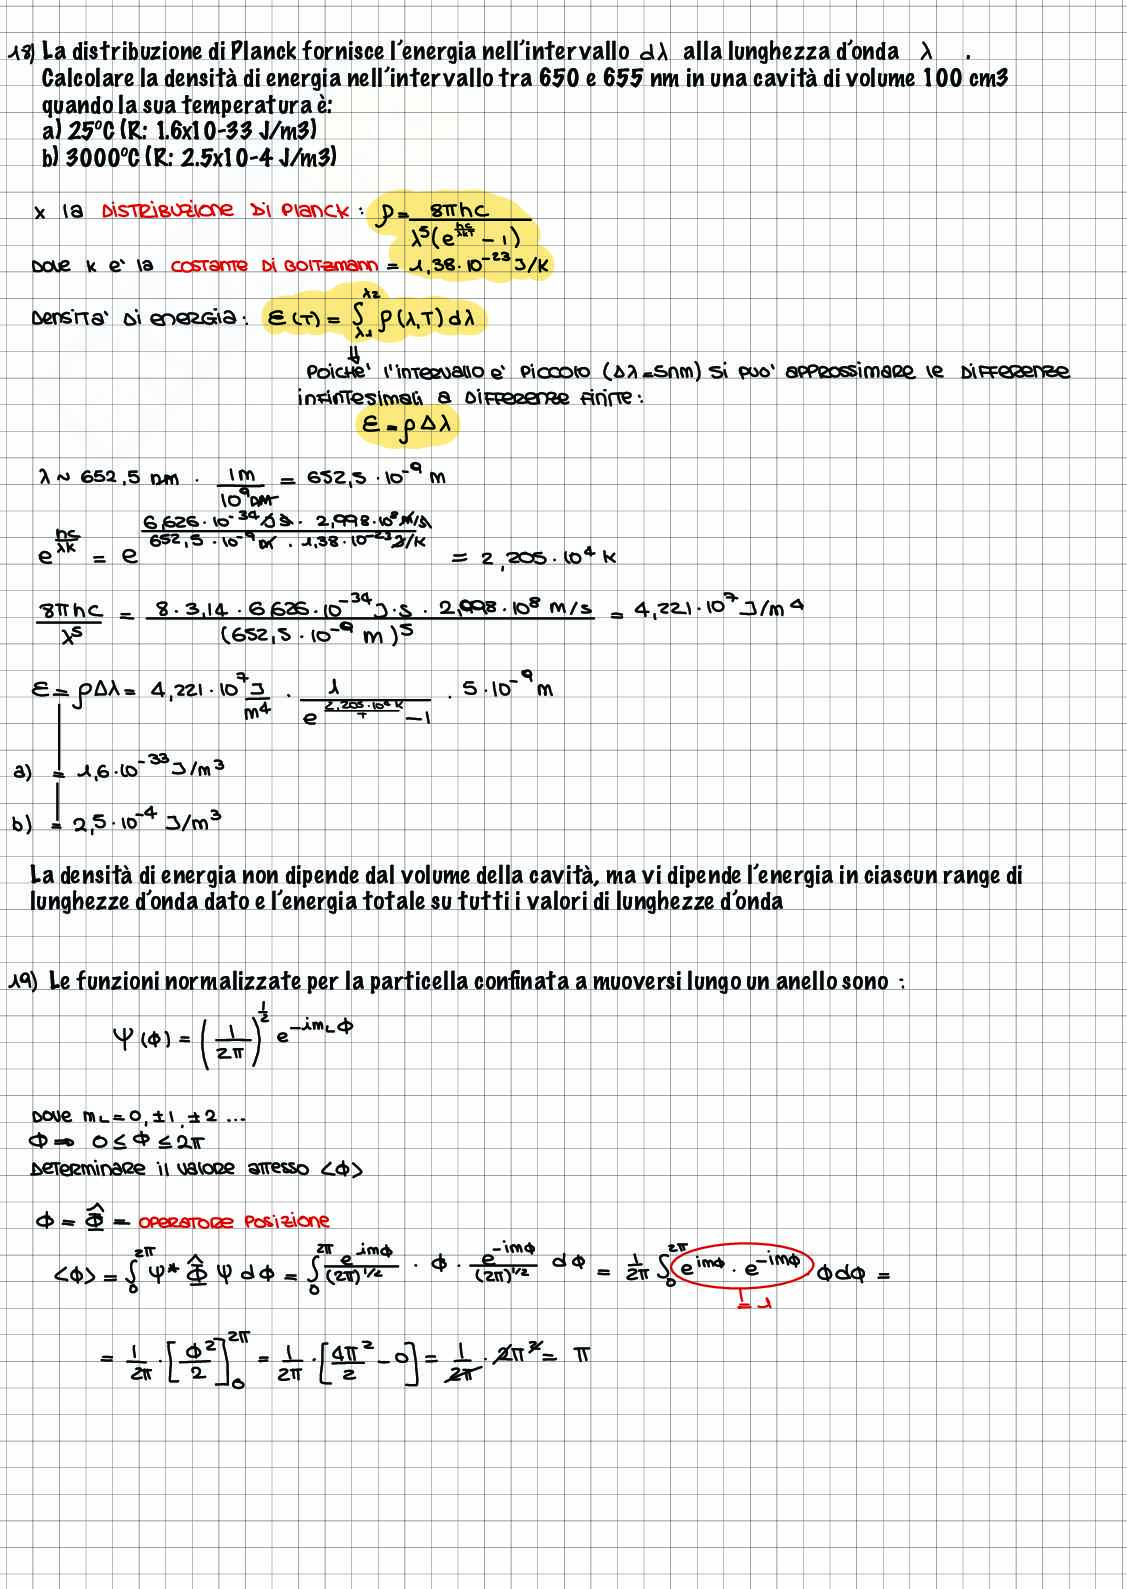 18) La distribuzione di Planck fornisce l'energia nell'intervallo dλ alla lunghezza d'onda λ .
Calcolare la densità di energia nell'intervallo tra 650 e 655 nm in una cavità di volume 100 cm3
quando la sua temperatura è:
a) 25°C (R: 1.6x10-33 J/m3)
b) 3000°C (R: 2.5x10-4 J/m3)
x la DISTRIBUZIONE DI PLANCK : ρ = 8πhc / λ⁵(e^(hc/λkT) - 1)
DOVE K E' LA COSTANTE DI BOLTZMANN = 1,38·10⁻²³ J/K
DENSITA' DI ENERGIA: ε(T) = ∫_λ1^λ2 ρ(λ,T) dλ
⇓
POICHE' L'INTERVALLO E' PICCOLO (Δλ=5nm) SI PUO' APPROSSIMARE LE DIFFERENZE
INFINTESIMALI A DIFFERENZE FINITE:
ε = ρΔλ
λ ~ 652,5 nm · 1m / 10⁹nm = 652,5 · 10⁻⁹ m
e^(hc/λk) = e^(6,626·10⁻³⁴ J·s · 2,998·10⁸ m/s / 652,5·10⁻⁹ m · 1,38·10⁻²³ J/K) = 2,205·10⁴ K
8πhc / λ⁵ = 8·3,14·6,626·10⁻³⁴ J·s · 2,998·10⁸ m/s / (652,5·10⁻⁹ m)⁵ = 4,221·10⁷ J/m⁴
ε = ρΔλ = 4,221·10⁷ J/m⁴ · 1 / (e^(2,205·10⁴ K / T) - 1) · 5·10⁻⁹ m
a) = 1,6·10⁻³³ J/m³
b) = 2,5·10⁻⁴ J/m³
La densità di energia non dipende dal volume della cavità, ma vi dipende l'energia in ciascun range di
lunghezze d'onda dato e l'energia totale su tutti i valori di lunghezze d'onda
19) Le funzioni normalizzate per la particella confinata a muoversi lungo un anello sono :
Ψ(ϕ) = (1/2π)^(1/2) e^(-im_Lϕ)
DOVE m_L = 0, ±1, ±2 ...
ϕ ⇒ 0 ≤ ϕ ≤ 2π
DETERMINARE IL VALORE ATTESO <ϕ>
ϕ = Φ̂ = OPERATORE POSIZIONE
<ϕ> = ∫_0^2π Ψ* Φ̂ Ψ dϕ = ∫_0^2π e^(imϕ)/(2π)^(1/2) · ϕ · e^(-imϕ)/(2π)^(1/2) dϕ = 1/2π ∫_0^2π e^(imϕ) · e^(-imϕ) ϕdϕ =
= 1
= 1/2π · [ϕ²/2]_0^2π = 1/2π · [4π²/2 - 0] = 1/2π · 2π² = π